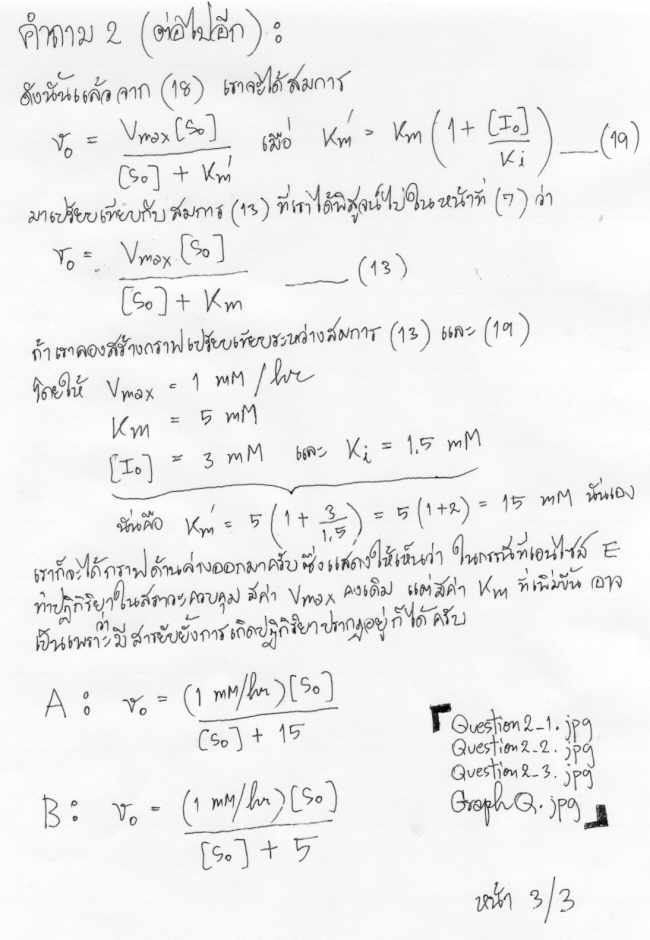 คำถาม 2 (ต่อไปอีก) :
ดังนั้นแล้วจาก (18) เราจะได้สมการ
v₀ = Vmax[S₀] / ([S₀] + Km′) เมื่อ Km′ = Km (1 + [I₀]/Ki) ___ (19)
มาเปรียบเทียบกับสมการ (13) ที่เราได้พิสูจน์ไปในหน้าที่ (7) ว่า
v₀ = Vmax[S₀] / ([S₀] + Km) ___ (13)
ถ้าเราลองสร้างกราฟเปรียบเทียบระหว่างสมการ (13) และ (19)
โดยให้ Vmax = 1 mM/hr
Km = 5 mM
[I₀] = 3 mM และ Ki = 1.5 mM
นั่นคือ Km′ = 5 (1 + 3/1.5) = 5 (1+2) = 15 mM นั่นเอง
เราก็จะได้กราฟด้านล่างออกมาครับ ซึ่งแสดงให้เห็นว่า ในกรณีที่เอนไซม์ E
ทำปฏิกิริยาในสภาวะควบคุม มีค่า Vmax คงเดิม แต่มีค่า Km ที่เพิ่มขึ้น อาจ
เป็นเพราะว่ามีสารยับยั้งการเกิดปฏิกิริยาปรากฏอยู่ก็ได้ครับ
A : v₀ = (1 mM/hr)[S₀] / ([S₀] + 15)
B : v₀ = (1 mM/hr)[S₀] / ([S₀] + 5)
「Question2_1.jpg
Question2_2.jpg
Question2_3.jpg
GraphQ.jpg」
หน้า 3/3